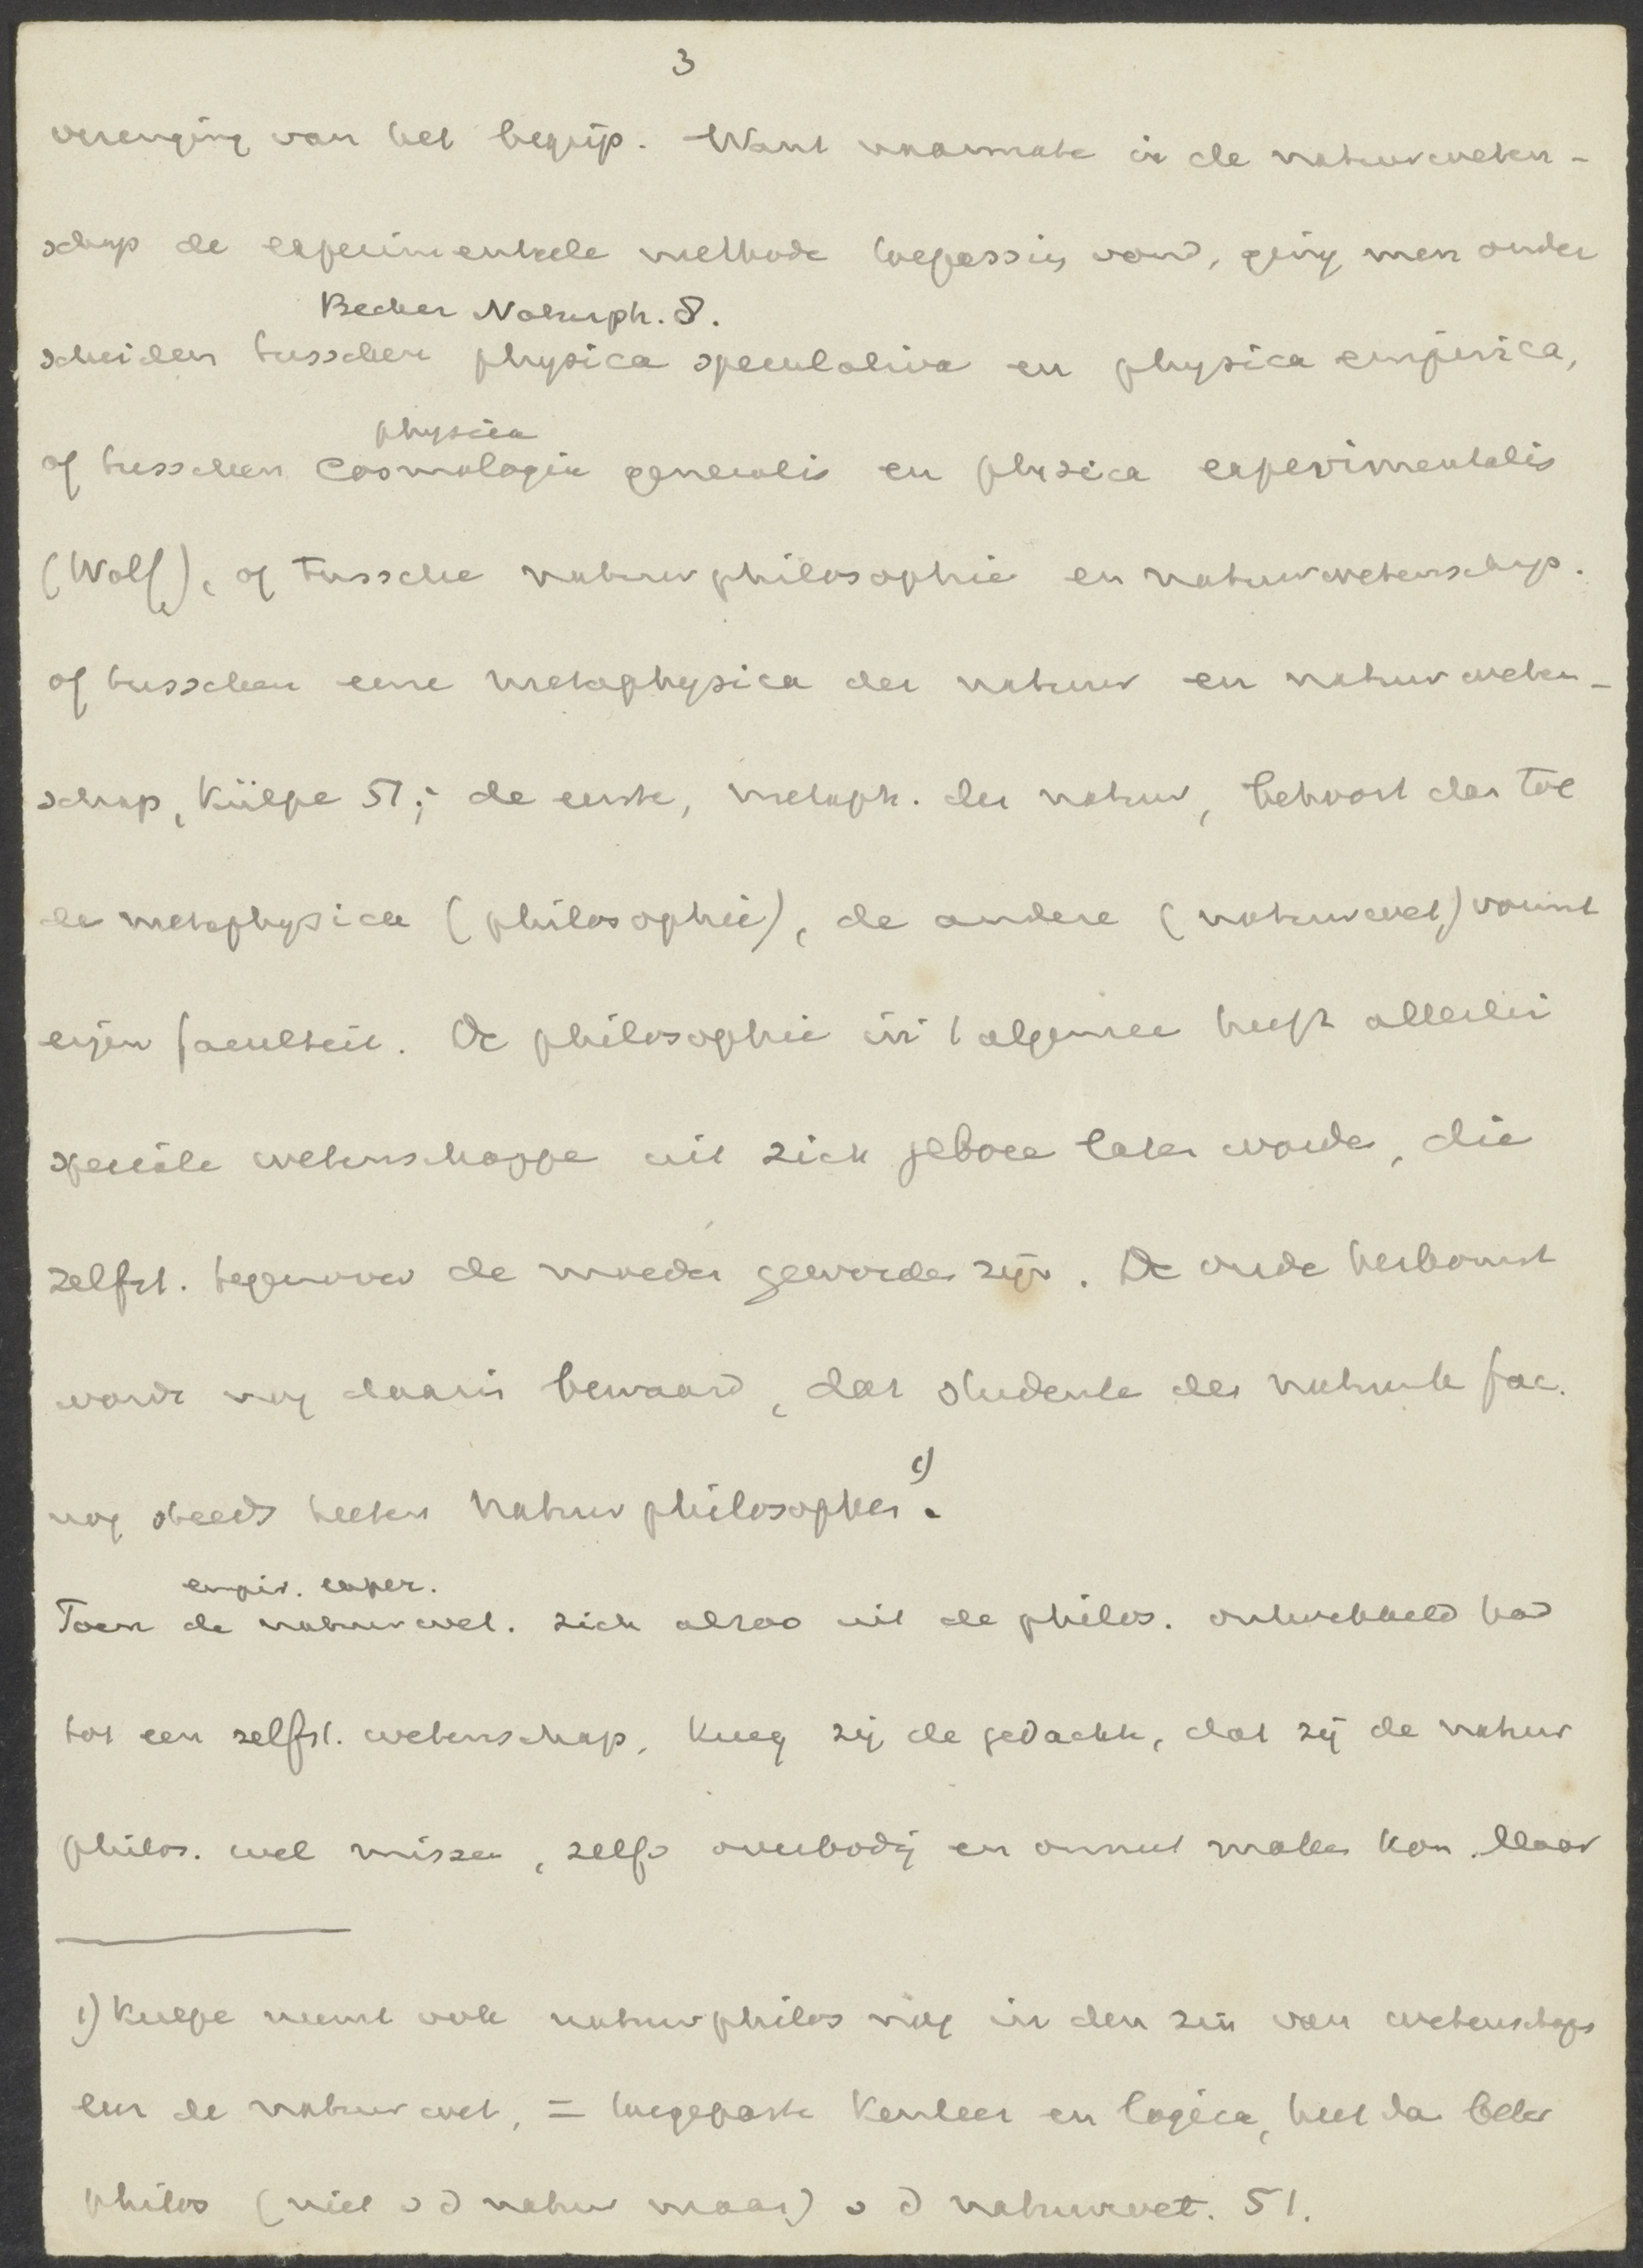 3
verenging van het begrip. Want naarmate in de natuurweten-
schap de experimenteele methode toepassing vond, ging men onder
Becher Naturph. 8.
scheiden tusschen physica speculativa en physica empirica,
physica
of tusschen Cosmologia generalis en physica experimentalis
(Wolff), of tussche natuurphilosophie en natuurwetenschap.
of tusschen eene metaphysica der natuur en natuurweten-
schap, Külpe 51; de eerste, metaph. der natuur, behoort dan tot
de metaphysica (philosophie), de andere (natuurwet.) vormt
eigen faculteit. De philosophie in 't algemee heeft allerlei
speciale wetenschappe uit zich gebore laten worden, die
zelfst. tegenover de moeder geworden zijn. De oude herkomst
wordt nog daarin bewaard, dat studente der natuurk fac.
nog steeds heeten Natuurphilosophen 1).
empir. exper.
Toen de natuurwet. zich alzoo uit de philos. ontwikkeld had
tot een zelfst. wetenschap, kreeg zij de gedachte, dat zij de natuur
philos. wel missen, zelfs overbodig en onnut maken kon. Maar
1) Kulpe neemt ook natuurphilos nog in den zin van wetenschaps
leer de natuurwet, = toegepaste kenleer en logica, heet dan beter
philos (niet v d natuur maar) v d natuurwet. 51.